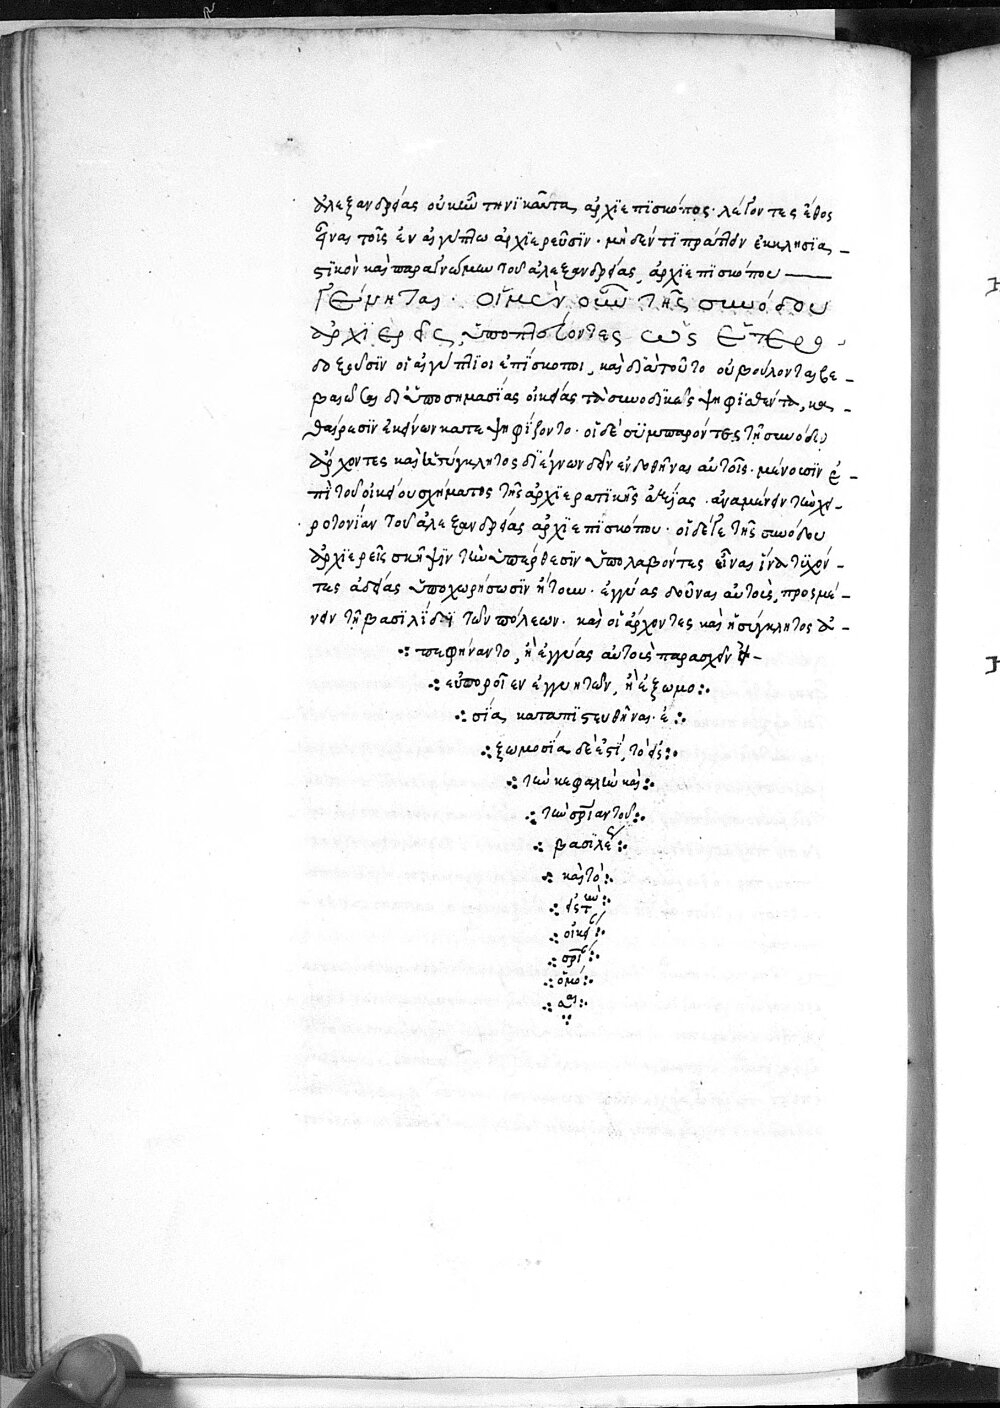 ἀλεξανδρείας οὐκ ἦν τηνικαῦτα, ἀρχιεπίσκοπος· λέγοντες ἔθος
εἶναι τοῖς ἐν αἰγύπτω ἀρχιερεῦσϊν· μηδέν τι πράττειν ἐκκλησϊα
στϊκὸν καὶ παρὰ γνώμην τοῦ ἀλεξανδρείας ἀρχϊεπϊσκόπου
οἱ μὲν οὖν τῆς συνόδου
ἀρχϊερεῖς, ὑποπτεύοντες ὡς ἑτερο
δοξοῦσϊν οἱ αἰγύπτϊοι ἐπΐσκοποι, καὶ δϊὰ τοῦτο οὐ βούλονται βε
βαιῶσαι δϊ' ὑποσημασΐας οἰκείας τὰ συνοδϊκῶς ψηφϊσθέντα, κα
θαίρεσϊν ἐκείνων κατεψηφΐζοντο· οἱ δὲ συμπαρόντες τῆ συνόδω
ἄρχοντες καὶ ἡ σύγκλητος δϊέγνων δεῖν ἐνδοθῆναι αὐτοῖς· μένουσϊν ἐ
πὶ τοῦ οἰκείου σχήματος τῆς ἀρχϊερατϊκῆς ἀξΐας ἀναμένειν τὴν χει
ροτονΐαν τοῦ ἀλεξανδρείας ἀρχϊεπϊσκόπου· οἱ δέ γε τῆς συνόδου
ἀρχϊερεῖς σκῆψϊν τὴν ὑπέρθεσϊν ὑπολαβόντες εἶναι ἵνα τυχόν
τες ἀδείας ὑποχωρήσωσϊν ἤτουν· ἐγγύας δοῦναι αὐτοὺς, προσμέ
νειν τῆ βασϊλΐδϊ τῶν πόλεων· καὶ οἱ ἄρχοντες καὶ ἡ σύγκλητος ἀ
πεφήναντο, ἢ ἐγγύας αὐτοὺς παρασχεῖν εἰ
εὐποροῖεν ἐγγυητῶν, ἢ ἐξωμο
σΐα, καταπϊστευθῆναι· ἐ
ξωμοσΐα δέ ἐστϊ, τὸ εἰς
τὴν κεφαλὴν καὶ
τὴν σωτηρΐαν τοῦ
βασϊλέως
καὶ τὸ
εἰς τὴν
οἰκείαν
σωτηρΐαν
ὀμόσαι